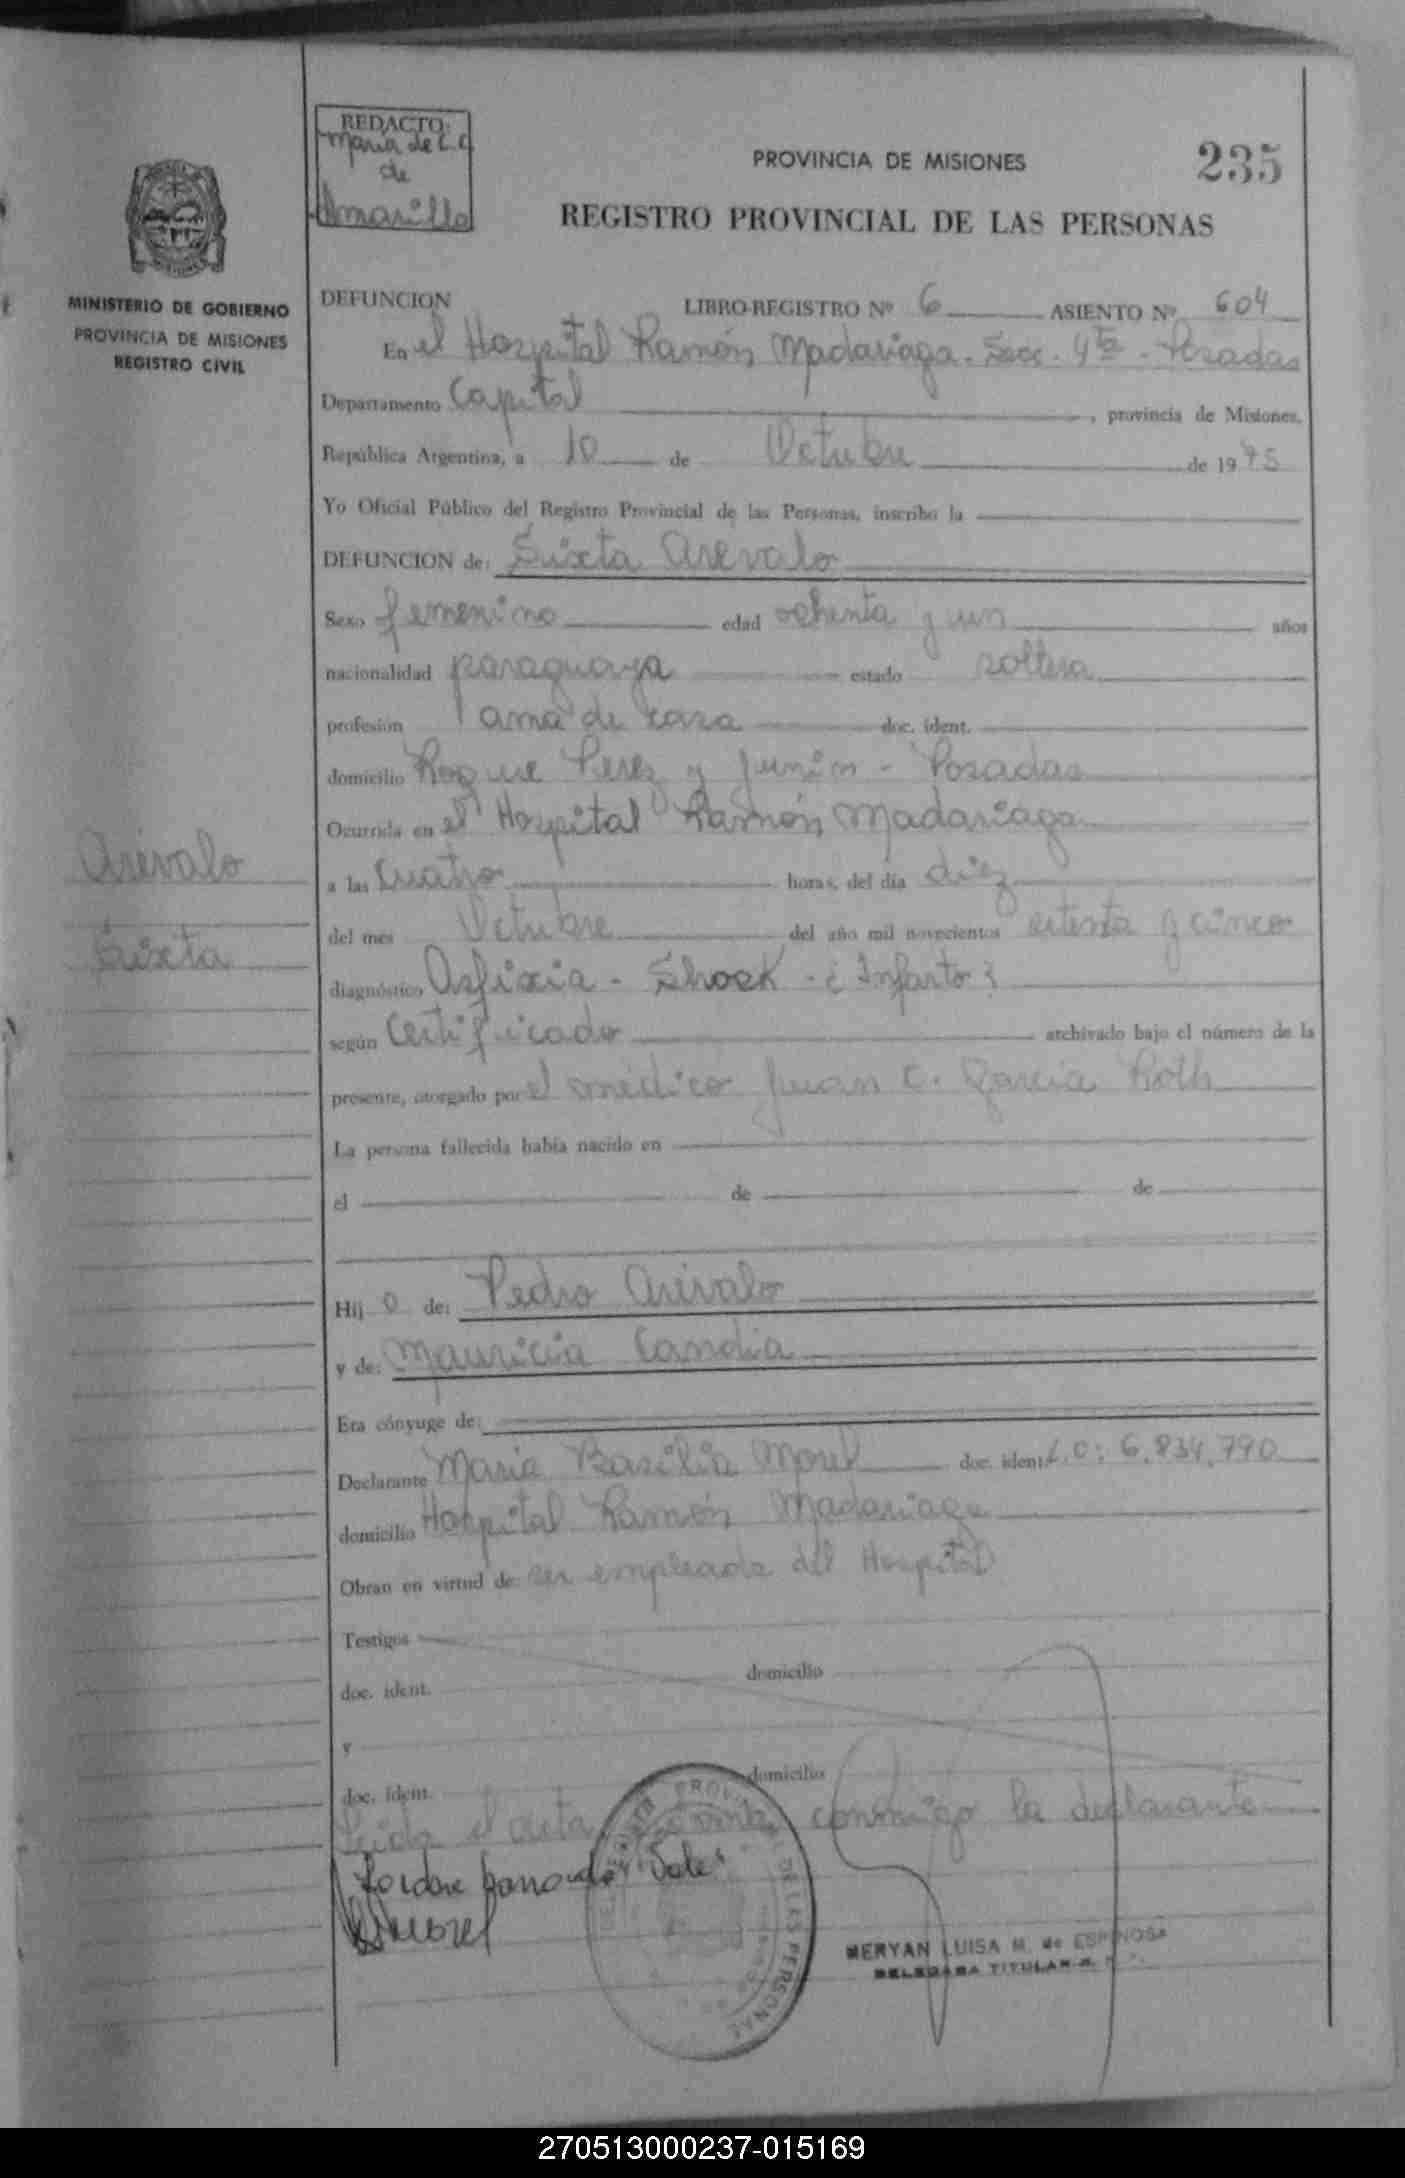 REDACTO:
Maria de L. C.
de
Amarilla
PROVINCIA DE MISIONES
235
REGISTRO PROVINCIAL DE LAS PERSONAS
MINISTERIO DE GOBIERNO
PROVINCIA DE MISIONES
REGISTRO CIVIL
DEFUNCION LIBRO-REGISTRO Nº 6 ASIENTO Nº 604
En el Hospital Ramón Madariaga - Secc. 4ta - Posadas
Departamento Capital , provincia de Misiones,
República Argentina, a 10 de Octubre de 1975
Yo Oficial Público del Registro Provincial de las Personas, inscribo la
DEFUNCION de: Sixta Arevalo
Sexo femenino edad ochenta y un años
nacionalidad paraguaya estado soltera
profesión ama de casa doc. ident.
domicilio Roque Perez y Junín - Posadas
Ocurrida en el Hospital Ramón Madariaga
Arévalo
a las cuatro horas, del día diez
del mes Octubre del año mil novecientos setenta y cinco
Sixta
diagnóstico Asfixia - Shock - ¿Infarto?
según Certificado archivado bajo el número de la
presente, otorgado por el médico Juan C. Garcia Roth
La persona fallecida había nacido en
el de de
Hij o de: Pedro Arévalo
y de: Mauricia Candia
Era cónyuge de:
Declarante Maria Basilia Morel doc. ident. L.C: 6.834.790
domicilio Hospital Ramón Madariaga
Obran en virtud de: ser empleada del Hospital
Testigos
doc. ident. domicilio
y
doc. ident. domicilio
Leida el acta firma conmigo la declarante
Vale.
BMorel
PROVINCIAL DE LAS PERSONAS
MERYAN LUISA M. de ESPINOSA
DELEGADA TITULAR
270513000237-015169